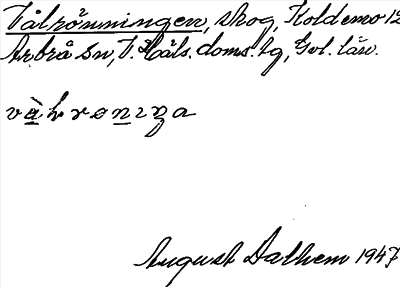 Vålrönningen, skog, Koldemo 12
Arbrå sn, V. Häls. doms. lg, Gvl. län.
vàhrenıŋa
August Dalhem 1947